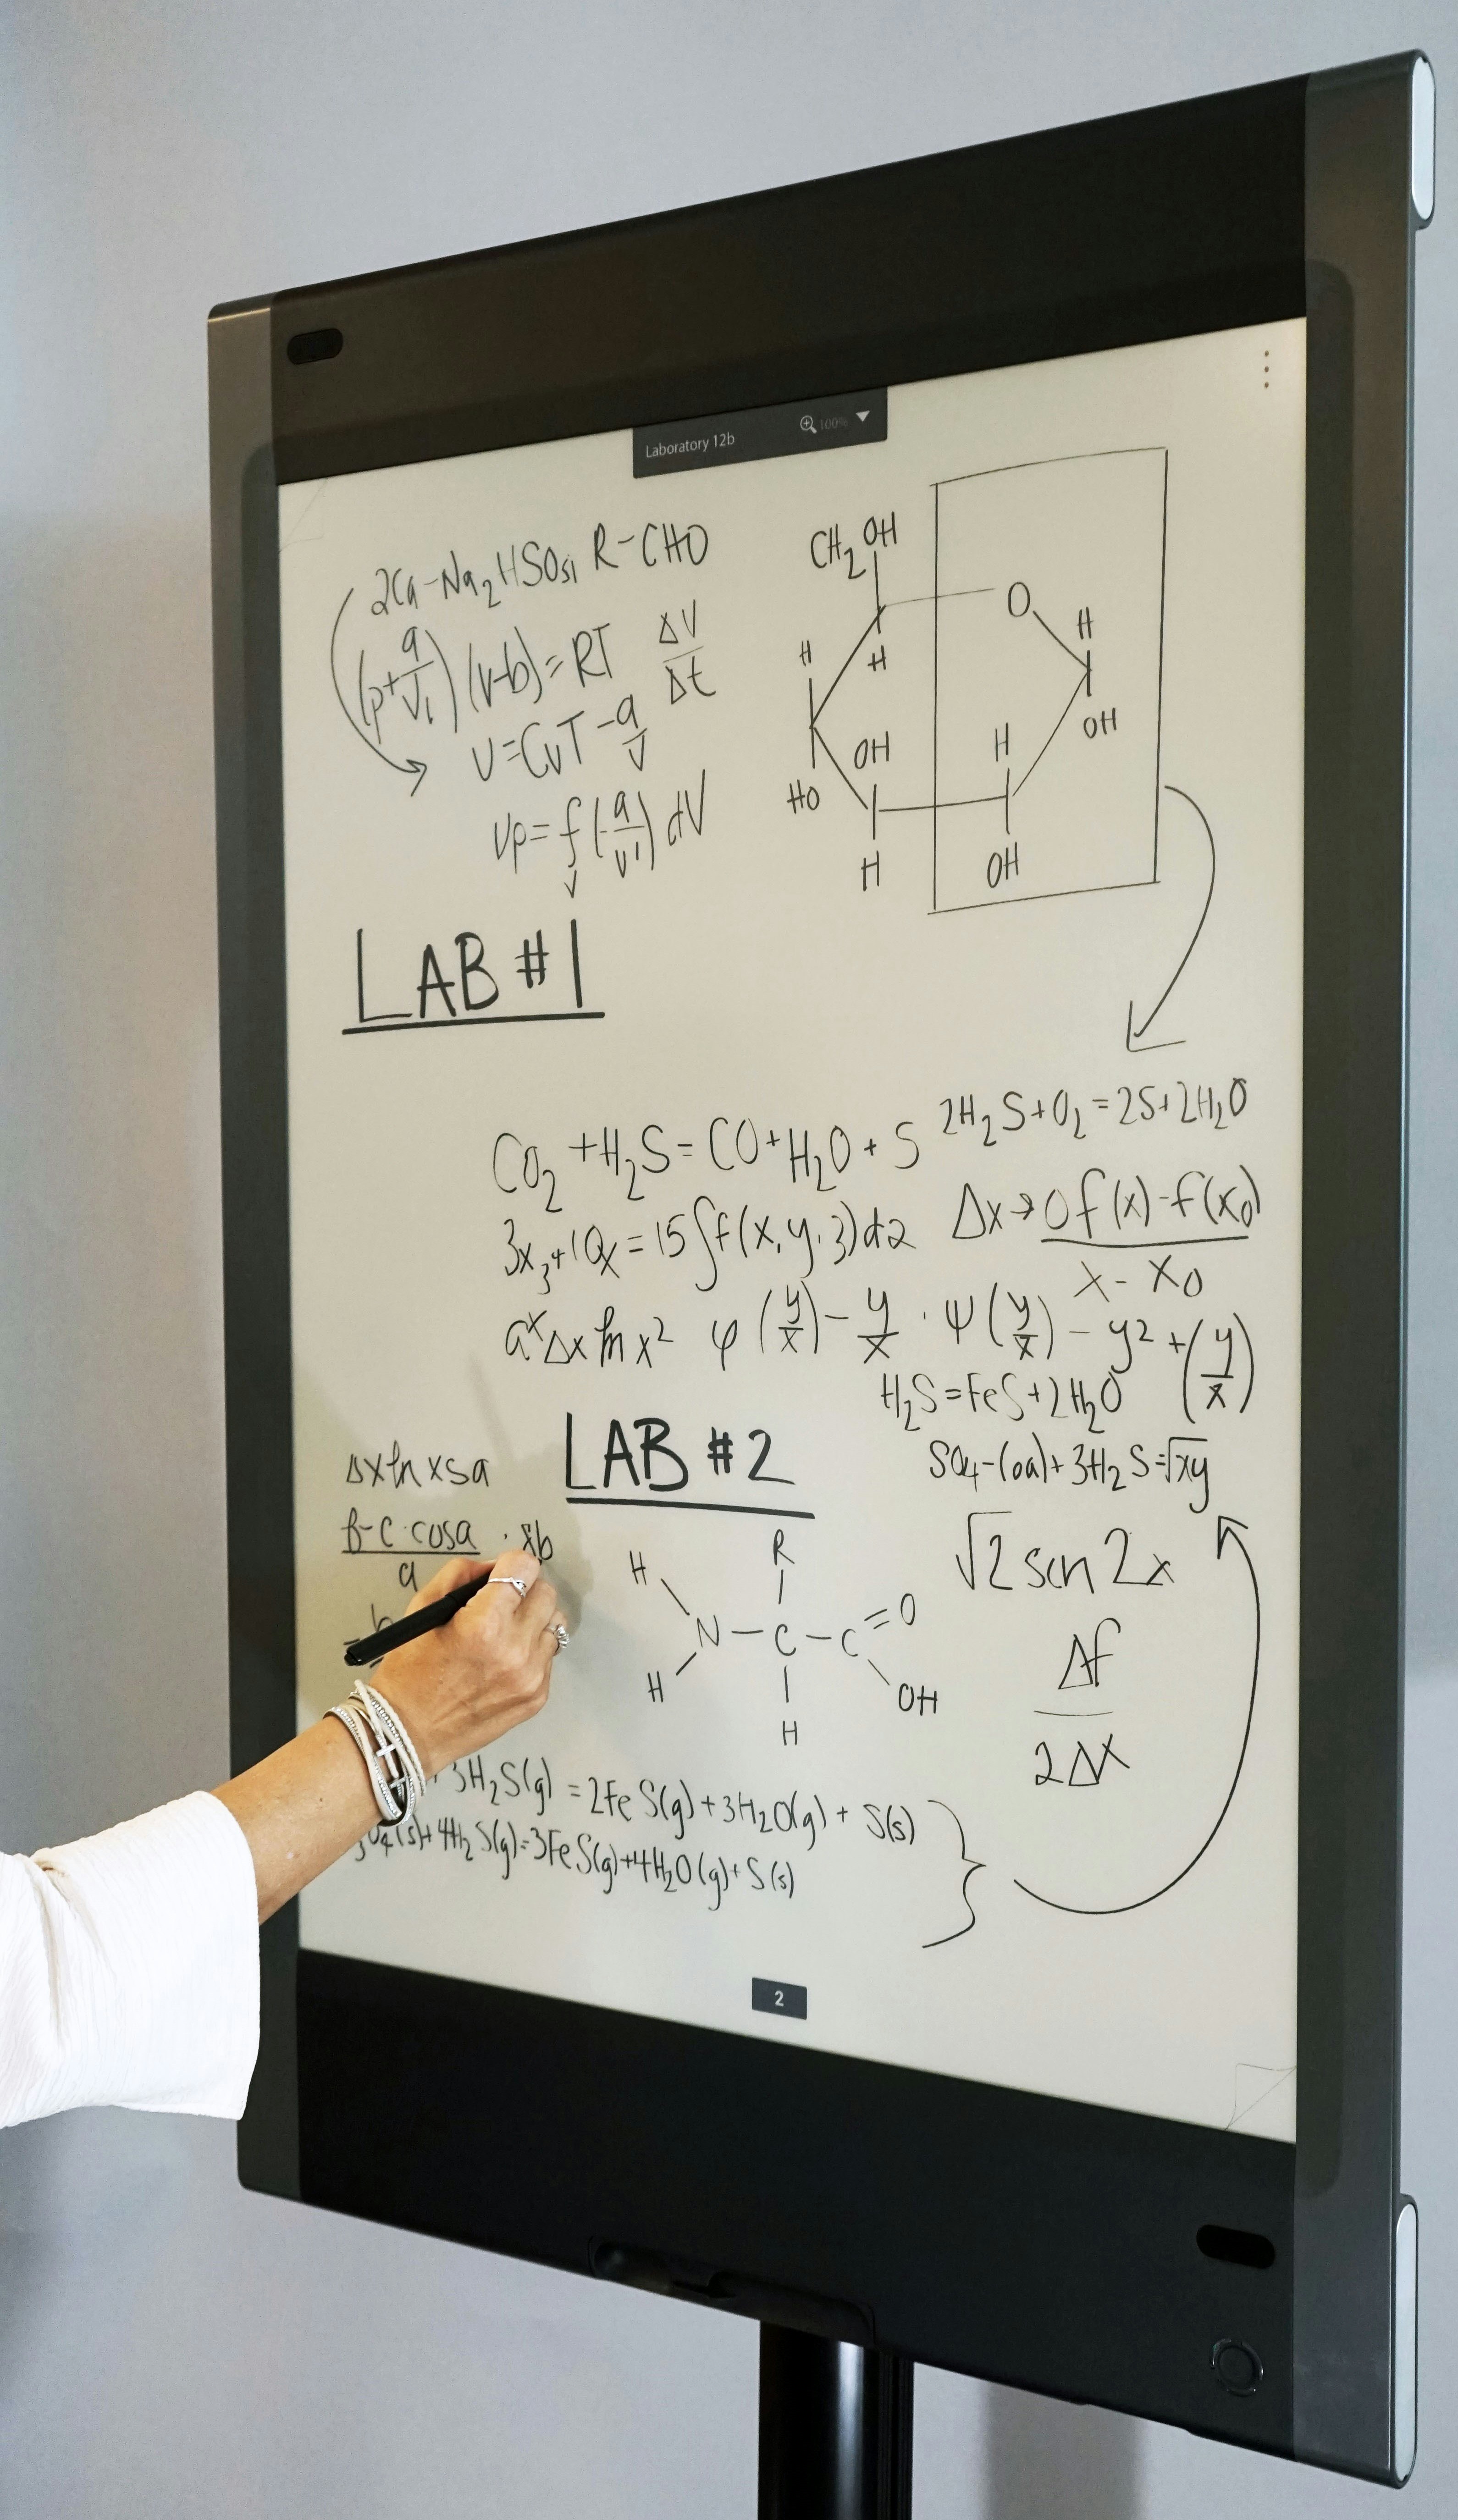 Laboratory 12b 100%
2Ca-Na2HSO51 R-CHO
(p+a/V1)(v-b)=RT ΔV/Δt
U=CvT-a/V
Up=∫v(-a/V1)dV
CH2OH
O
H
H
H
OH
OH
H
HO
H
OH
LAB #1
CO2+H2S=CO+H2O+S 2H2S+O2=2S+2H2O
3x3+10x=15∫f(x,y.3)dz Δx→0 f(x)-f(x0)/x-x0
a^xΔx ln x² φ(y/x)-y/x·ψ(y/x)-y²+(y/x)
H2S=FeS+2H2O
LAB #2
SO4-(oa)+3H2S=√xy
Δx ln x5a
b-c·cosa/a
√2 sin 2x
H
R
N-C-C=O
H
OH
H
Δf/2Δx
+3H2S(g)=2FeS(g)+3H2O(g)+S(s)
3O4(s)+4H2S(g)=3FeS(g)+4H2O(g)+S(s)
2